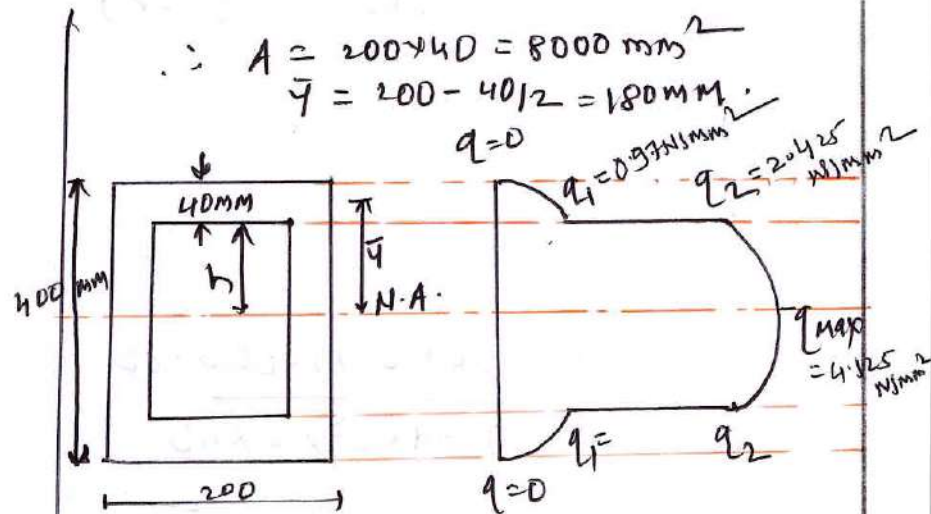 ∴ A = 200×40 = 8000 mm²
ȳ = 200 - 40/2 = 180mm.
q=0
q₁=0.97N/mm²
q₂=2.425 N/mm²
40MM
h
ȳ
400 mm
N.A.
q max = 4.125 N/mm²
q₁=
q₂
200
q=0